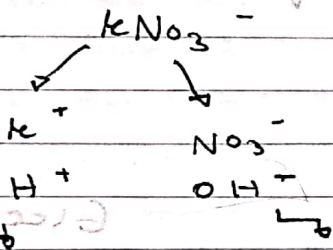 KNO3 -
K+
NO3-
H+ OH-